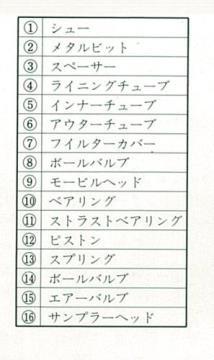 ① シュー
② メタルビット
③ スペーサー
④ ライニングチューブ
⑤ インナーチューブ
⑥ アウターチューブ
⑦ フイルターカバー
⑧ ボールバルブ
⑨ モービルヘッド
⑩ ベアリング
⑪ ストラストベアリング
⑫ ピストン
⑬ スプリング
⑭ ボールバルブ
⑮ エアーバルブ
⑯ サンプラーヘッド